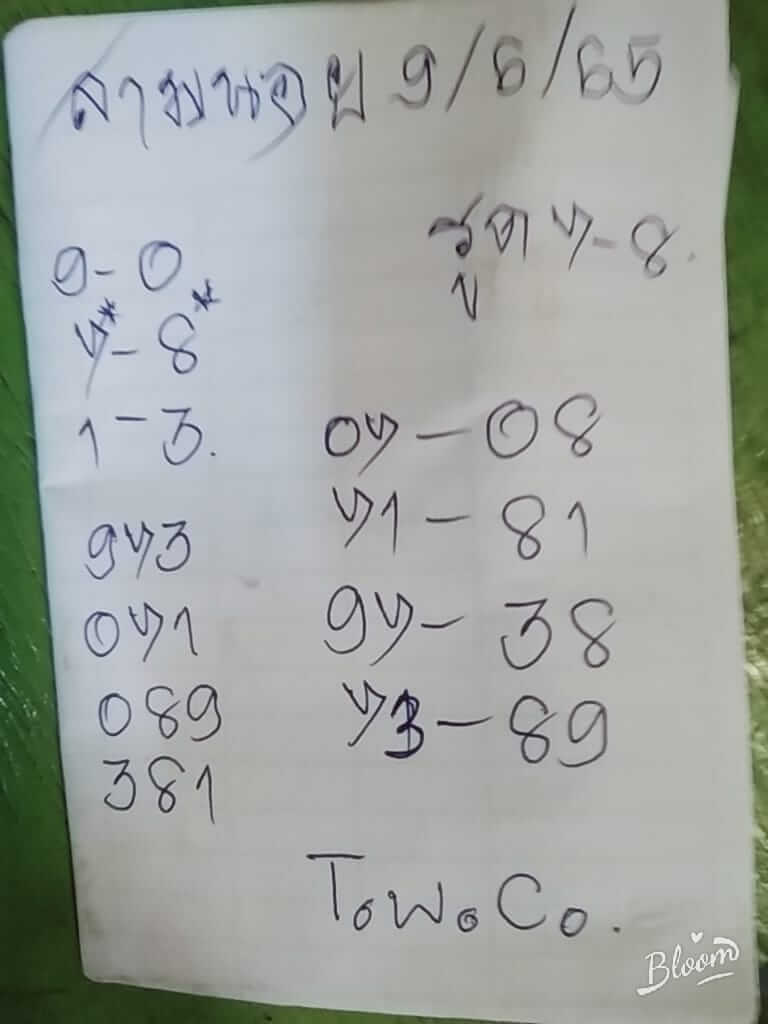 ลาวมนอย 9/6/65
รูด 7-8.
9-0
7*-8*
1-3.
07-08
71-81
973
97-38
071
73-89
089
381
T.W.C.
Bloom